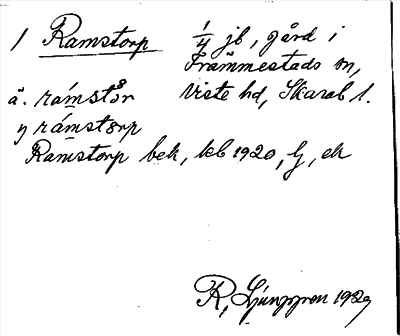 1 Ramstorp 1/4 jb, gård i
Främmestads sn,
ä. rámstår Viste hd, Skarab l.
y rámstorp
Ramstorp bek, kb 1920, lj, ek
R, Ljunggren 1929